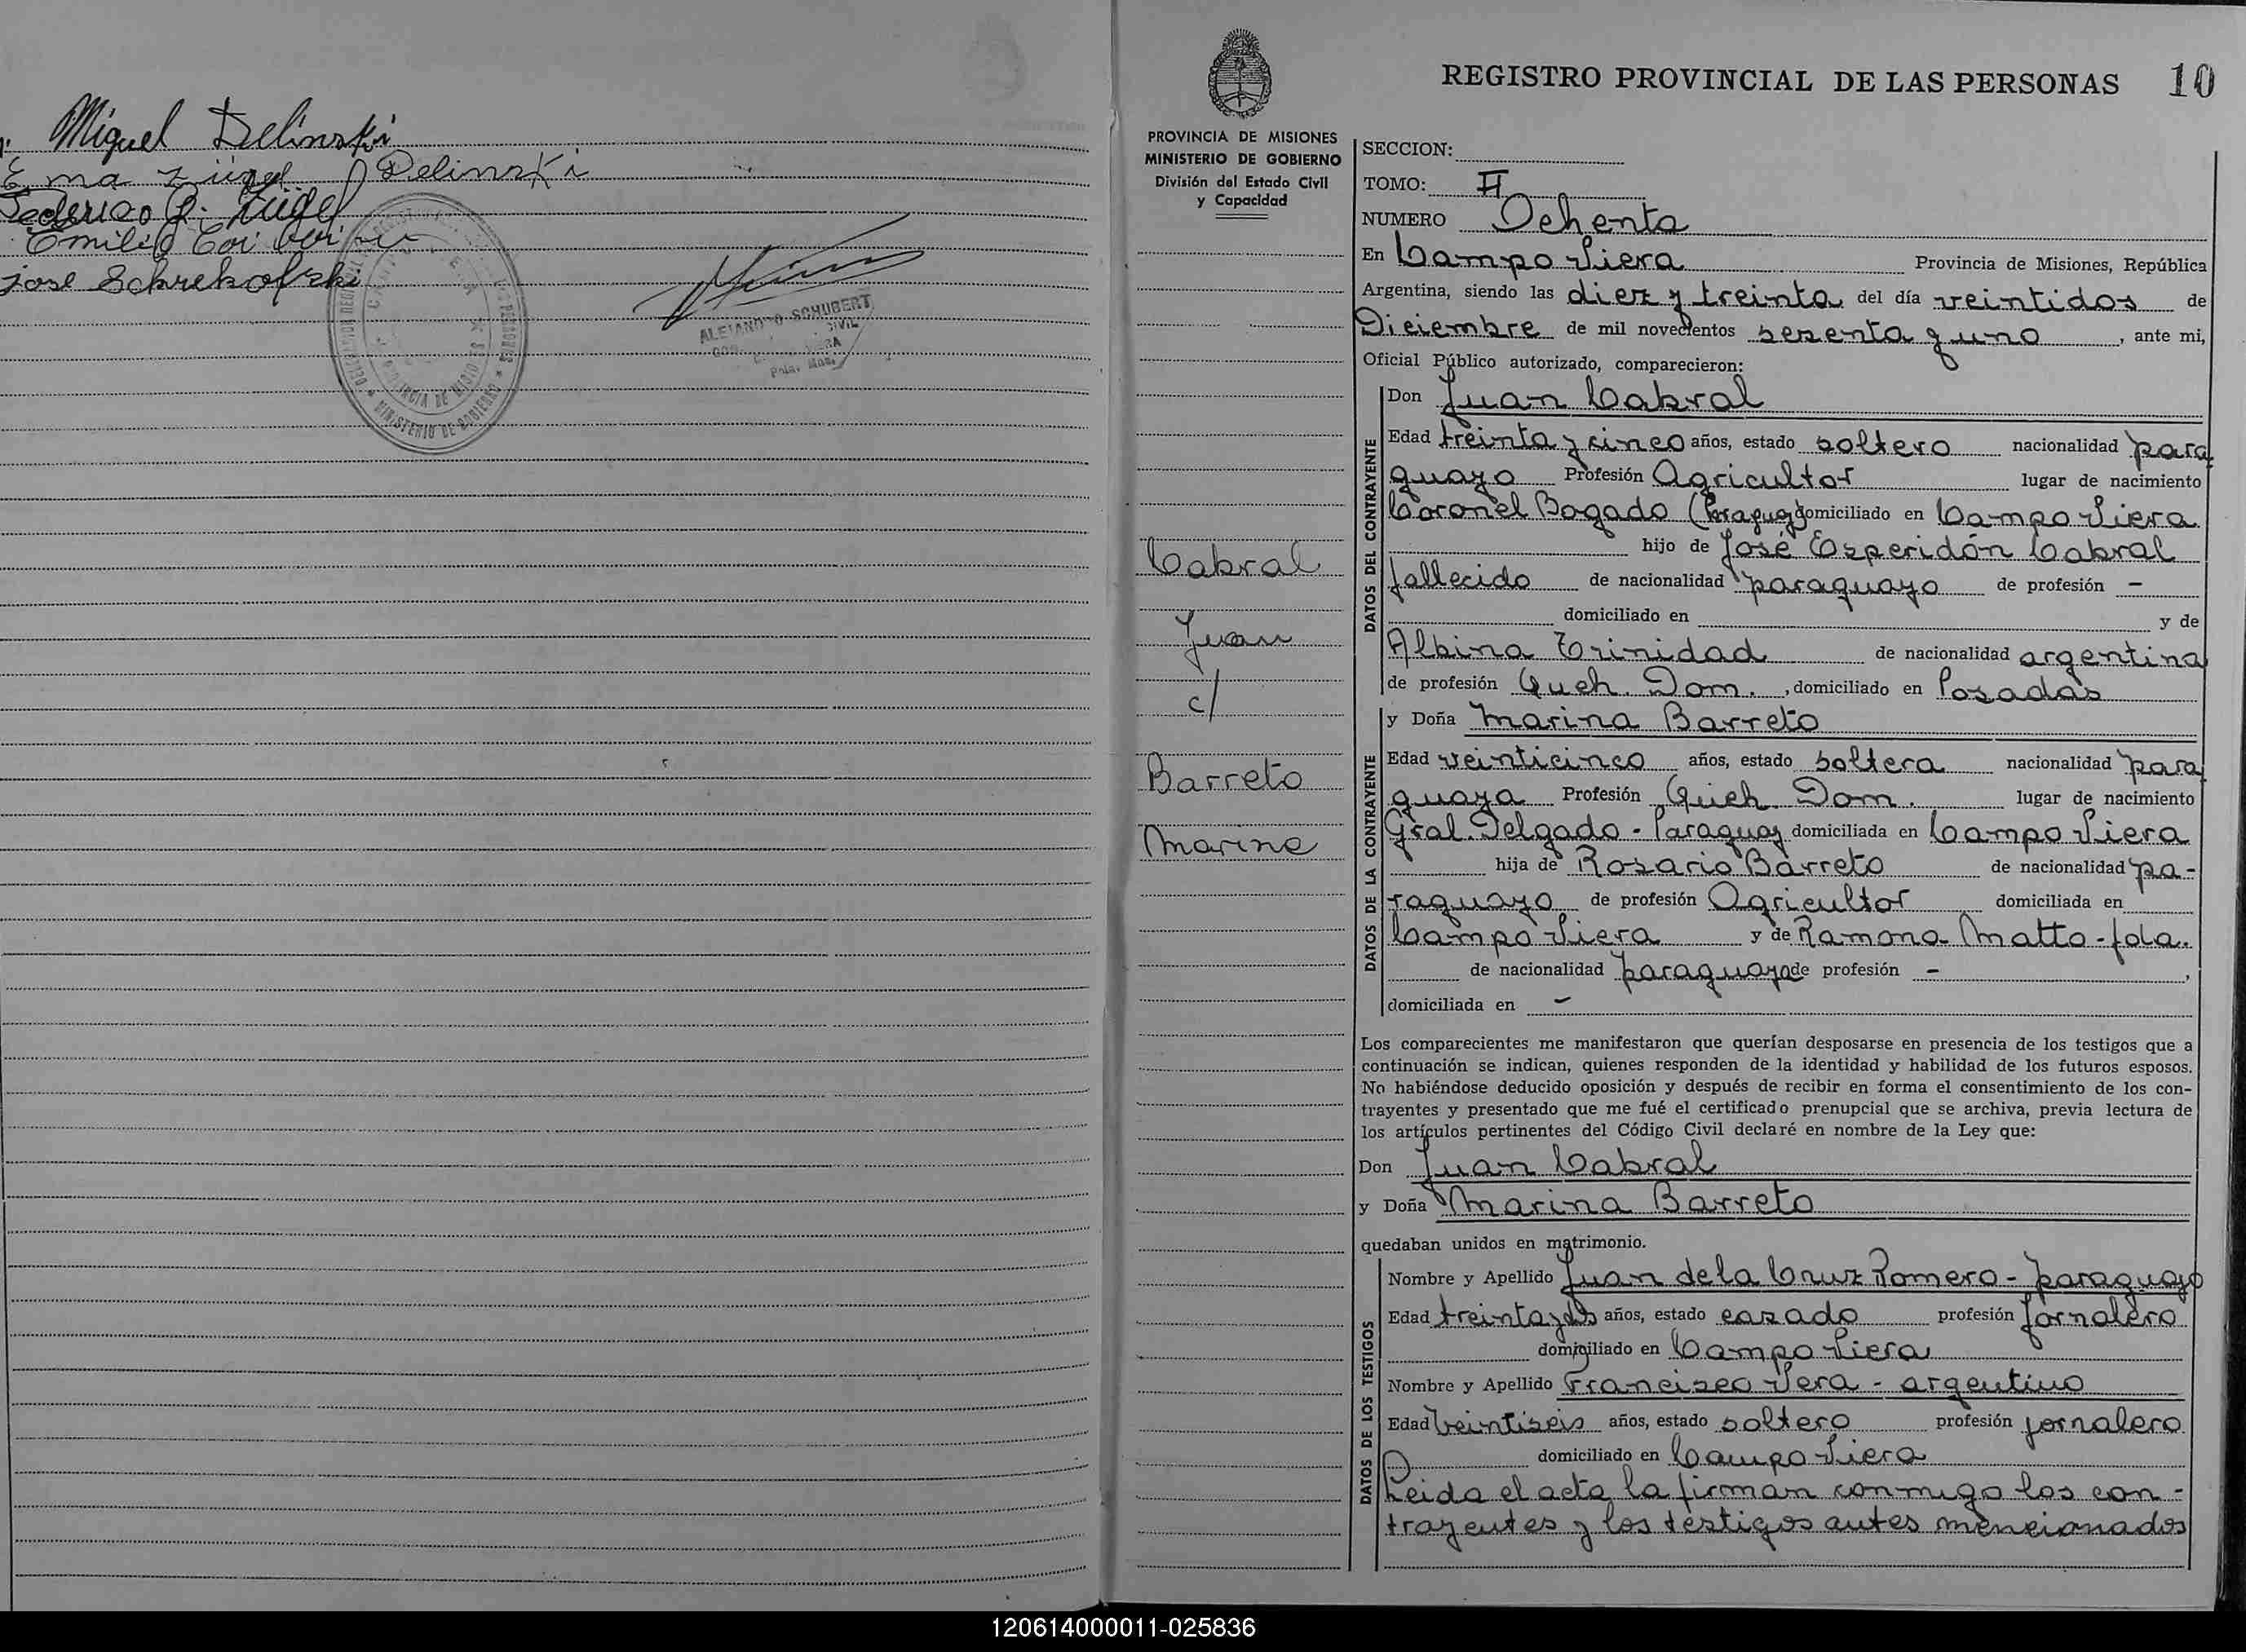 Miguel Delinski
Ema Zügel Delinski
Federico R. Zügel
Emilio
José Schrekofski
ALEJANDRO SCHUBERT
CIVIL
MINISTERIO DE GOBIERNO
PROVINCIA DE MISIONES
REGISTRO PROVINCIAL DE LAS PERSONAS 10
PROVINCIA DE MISIONES
MINISTERIO DE GOBIERNO
División del Estado Civil
y Capacidad
Cabral
Juan
c/
Barreto
Marina
SECCION:
TOMO: II
NUMERO Ochenta
En Campo Viera Provincia de Misiones, República
Argentina, siendo las diez y treinta del día veintidos de
Diciembre de mil novecientos sesenta y uno, ante mi,
Oficial Público autorizado, comparecieron:
DATOS DEL CONTRAYENTE
Don Juan Cabral
Edad treinta y cinco años, estado soltero nacionalidad para
guayo Profesión Agricultor lugar de nacimiento
Coronel Bogado (Paraguay) domiciliado en Campo Viera
hijo de José Esperidón Cabral
fallecido de nacionalidad paraguayo de profesión -
domiciliado en y de
Albina Trinidad de nacionalidad argentina
de profesión Queh. Dom., domiciliado en Posadas
DATOS DE LA CONTRAYENTE
y Doña Marina Barreto
Edad veinticinco años, estado soltera nacionalidad para
guaya Profesión Queh. Dom. lugar de nacimiento
Gral. Delgado - Paraguay domiciliada en Campo Viera
hija de Rosario Barreto de nacionalidad pa-
raguayo de profesión Agricultor domiciliada en
Campo Viera y de Ramona Matto - fda.
de nacionalidad paraguaya de profesión - ,
domiciliada en -
Los comparecientes me manifestaron que querían desposarse en presencia de los testigos que a
continuación se indican, quienes responden de la identidad y habilidad de los futuros esposos.
No habiéndose deducido oposición y después de recibir en forma el consentimiento de los con-
trayentes y presentado que me fué el certificado prenupcial que se archiva, previa lectura de
los artículos pertinentes del Código Civil declaré en nombre de la Ley que:
Don Juan Cabral
y Doña Marina Barreto
quedaban unidos en matrimonio.
DATOS DE LOS TESTIGOS
Nombre y Apellido Juan de la Cruz Romero - paraguayo
Edad treinta y dos años, estado casado profesión jornalero
domiciliado en Campo Viera
Nombre y Apellido Francisco Vera - argentino
Edad veintiseis años, estado soltero profesión jornalero
domiciliado en Campo Viera
Leida el acta la firman conmigo los con-
trayentes y los testigos antes mencionados
120614000011-025836